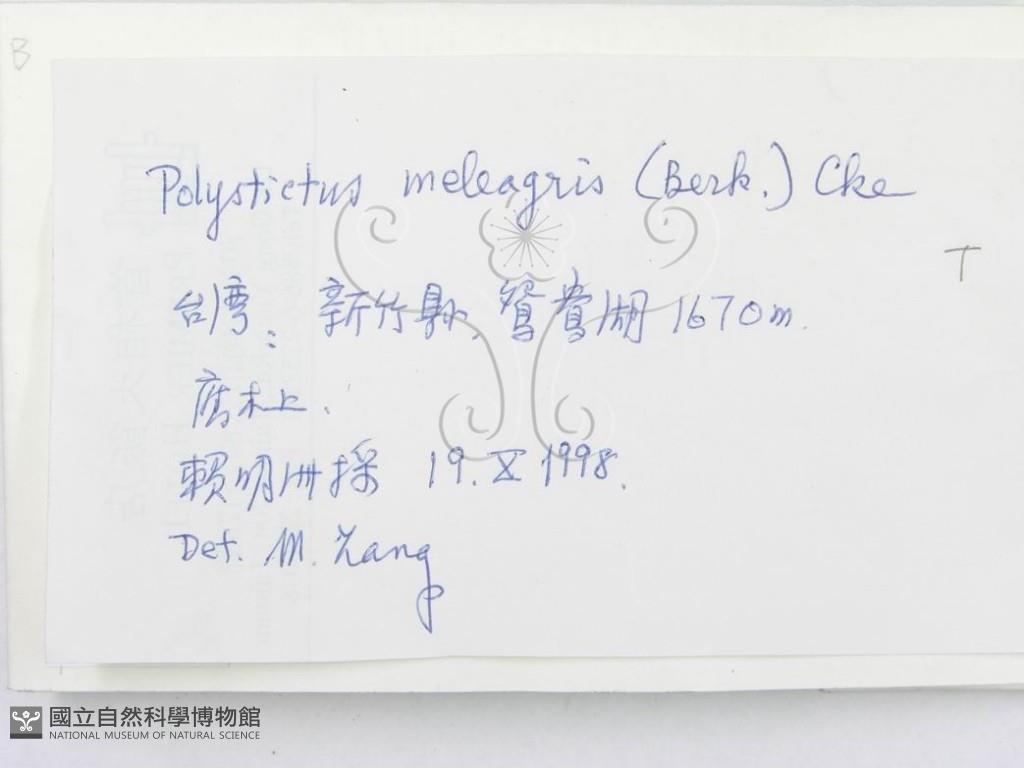 B
Polystictus meleagris (Berk.) Cke
T
台湾: 新竹縣, 鴛鴦湖 1670m.
腐木上.
賴明洲採 19. X 1998.
Det. M. Zang
國立自然科學博物館
NATIONAL MUSEUM OF NATURAL SCIENCE